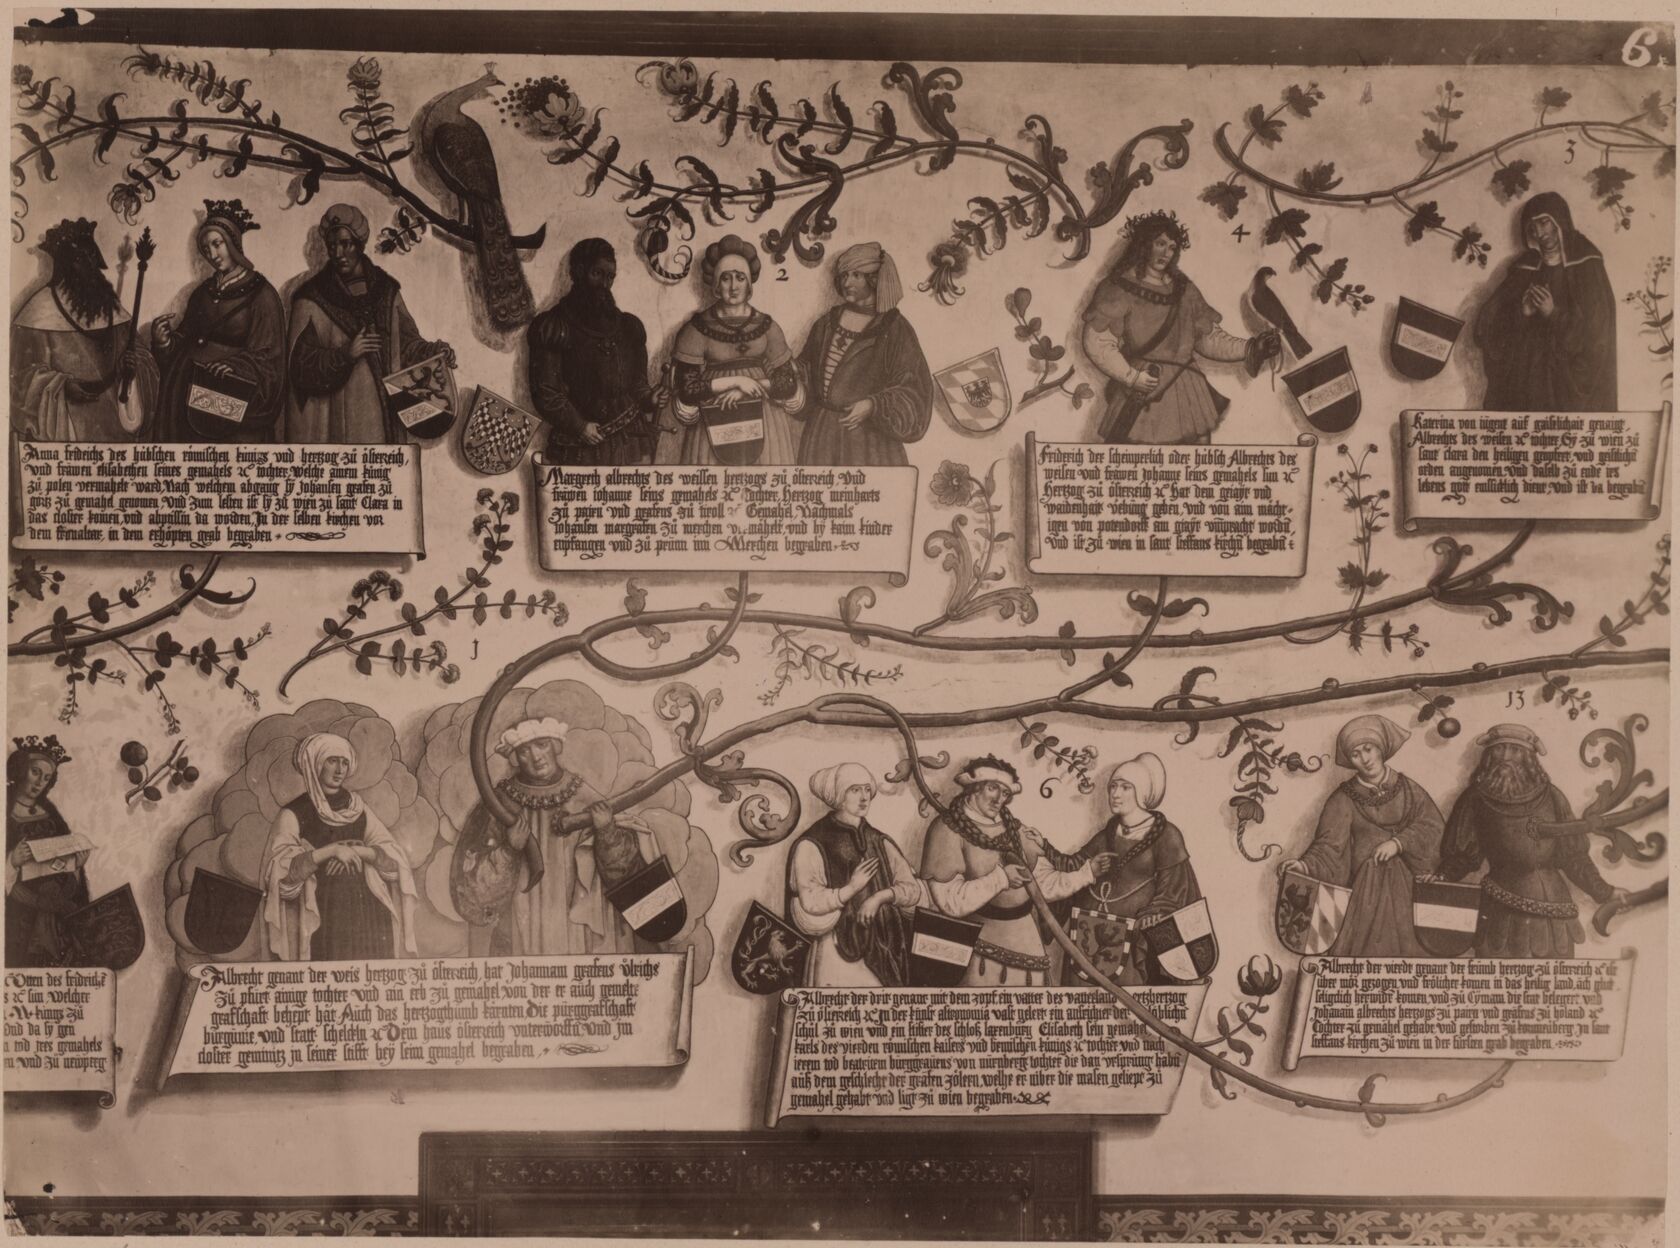 6
3
4
2
Anna fridrichs des hübschen römischen künigs vnd hertzog zu österreich,
vnd frawen elisabethen seines gemahels tochter, welche ainem künig
zu polen vermahelt ward, Nach welchem abgang sy Johansen grafen zu
görtz zu gemahel genomen, Vnd zum lesten ist sy zu wien zu sant Clara in
das closter komen, vnd abptissin da worden, In der selben kirchen vor
dem fronaltar, in dem erhöpten grab begraben
Margreth albrechts des weissen hertzogs zu österreich, Vnd
frawen iohanne seins gemahels tochter, Hertzog meinharts
zu pairn vnd grafens zu tiroll Gemahel, Nachmals
Johansen margrafen zu merchen vermähelt, vnd by kaim kinder
empfangen vnd zu prünn inn Merchen begraben
Friderich der scheinperlich oder hübsch Albrechts des
weisen vnd frawen Johanne seins gemahels sun
Hertzog zu österreich Hat dem geiayr vnd
waidenhait vebung geben, vnd von aim mächt-
igen von potendorff am geiayr vmpracht worden,
Vnd ist zu wien in sant steffans kirchen begraben
Katerina von iugent auff gaistlichait genaigt,
Albrechts des weisen tochter, Sy zu wien zu
sant clara den heiligen und gaistlichen
orden angenomen, vnd daselb zu ende irs
lebens gott emssiklich dient, vnd ist da begraben
1
13
6
Otten des fridrichs
sun welcher
künigs zu
Vnd da sy gen
vnd ires gemahels
vnd zu newperg
Albrecht genant der weis hertzog zu österreich, hat Johannam grafens vlrichs
zu phirt ainige tochter vnd ain erb zu gemahel, von der er auch gemelte
grafschafft behept hat Auch das hertzogthumb kärnten Die pürggrafschafft
burgunie, vnd statt schelcklin Dem haus österreich vnterworffn, Vnd im
closter geminitz in seiner stifft bey seim gemahel begraben
Albrecht der drit genant mit dem zopf, ein vatter des vatterland ertzhertzog
zu österreich In der künst astronomia vast gelert, ein aufricher der löblichen
schul zu wien vnd ein stiffter des schlos laxenburg Elisabeth sein gemahel
karls des vierden römischen kaisers vnd bemischen künigs tochter vnd nach
irem tod beatricem burggrauens von nürnberg tochter die dan vrsprüng haben
auss dem geschlecht der grafen zolern, welhe er vber die masen geliept zu
gemahel gehabt vnd ligt zu wien begraben
Albrecht der vierde genant der frümb hertzog zu österreich ist
über mör gezogen vnd frölicher komen in das heilig land, ach glück
seligclich herwider komen, vnd zu Cynam die stat belegert vnd
Johanam albrechts hertzogs zu pairn vnd grafens zu holand
Tochter zu gemahel gehabt, vnd gestorben zu kornneüberg, In sant
steffans kirchen zu wien in der fürsten grab begraben